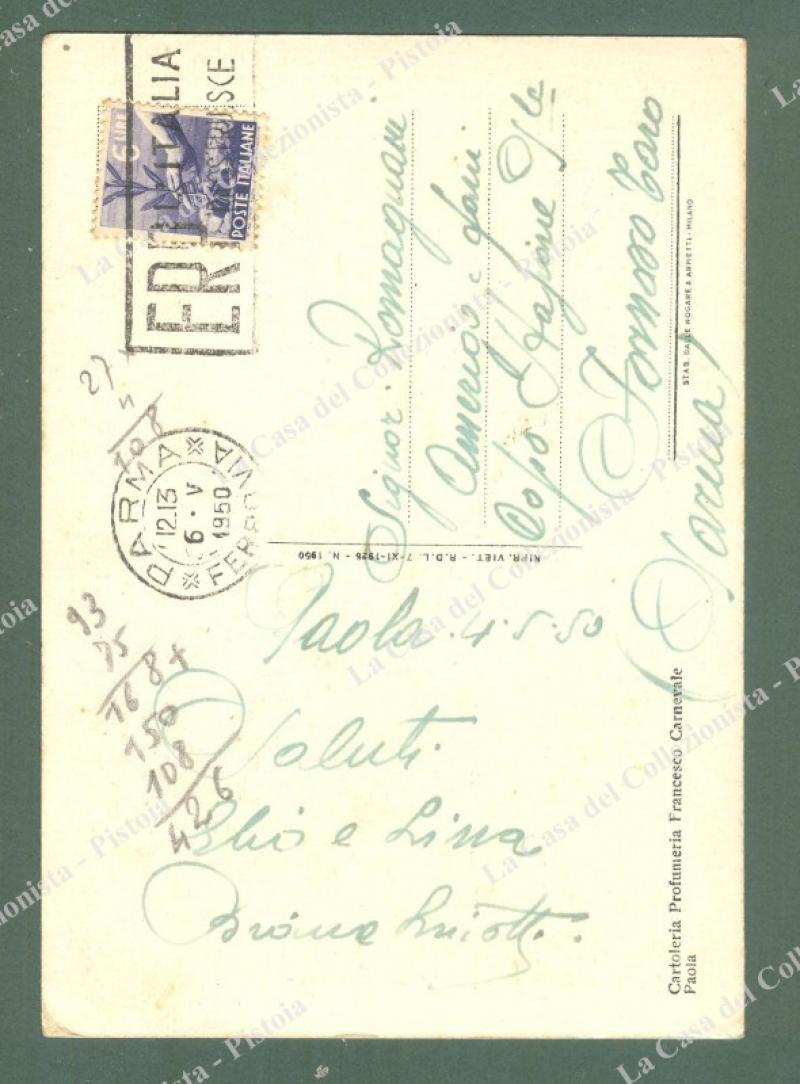 Paola. 4-5-50
Saluti
Elio e Lina
Signor Romagnani
Amerigo e fam
Capo Stazione Ple
Fornovo Taro
(Parma)
6 LIRE
POSTE ITALIANE
ERP
ITALIA
PARMA FERROVIA
12.13
6·V
1950
27
4
108
93
75
168+
150
108
426
RIPR. VIET. - R.D.L. 7-XI-1925 - N. 1950
STAB. DALLE NOGARE & ARMETTI - MILANO
Cartoleria Profumeria Francesco Carnevale
Paola
La Casa del Collezionista - Pistoia